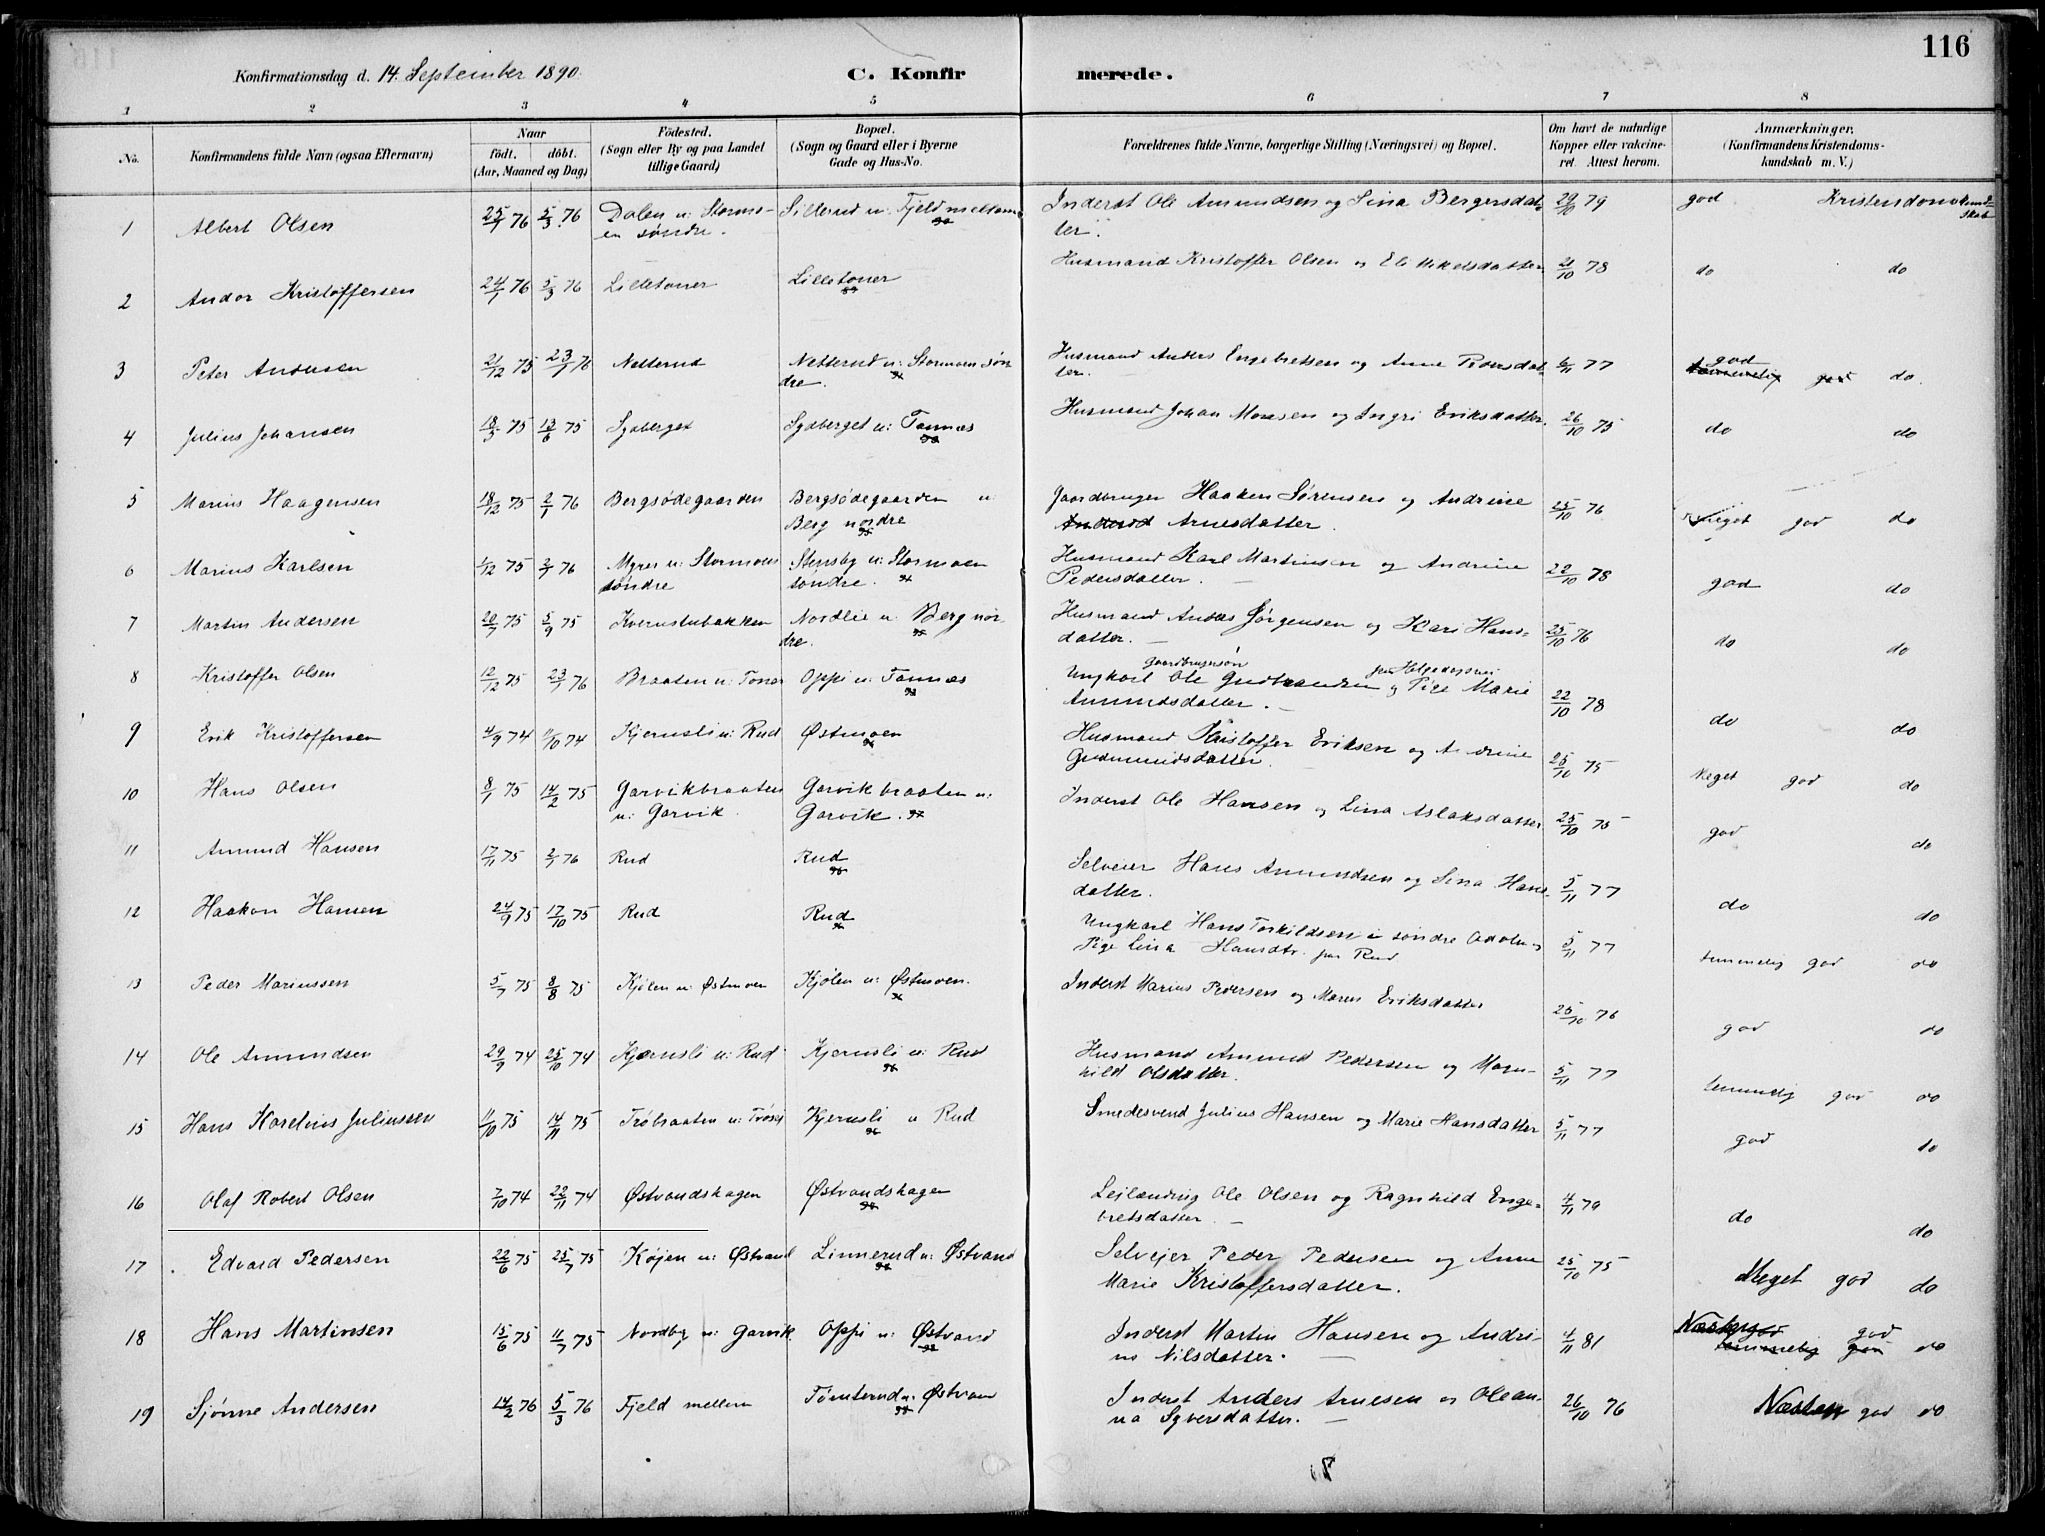 116
Konfirmationsdag d. 14. September 1890.
C. Konfirmerede.
1 2 3 4 5 6 7 8
No.
Konfirmandens fulde Navn (ogsaa Efternavn)
Naar
födt. döbt.
(Aar, Maaned og Dag)
Födested.
(Sogn eller By og paa Landet
tillige Gaard)
Bopæl.
(Sogn og Gaard eller i Byerne
Gade og Hus-No.
Forældrenes fulde Navne, borgerlige Stilling (Næringsvei) og Bopæl.
Om havt de naturlige
Kopper eller vakcine-
ret. Attest herom.
Anmærkninger.
(Konfirmandens Kristendoms-
kundskab m. V.)
1 Albert Olsen 25/1 76 5/3 76 Dalen u: Stormo- Sillerud u: Fjeld mellem Inderst Ole Amundsen og Lina Bergersdat- 29/10 79 god Kristendomskund-
en søndre. ter. skab
2 Andor Kristoffersen 24/1 76 5/3 76 Lilletoner Lilletoner Husmand Kristoffer Olsen og Eli Mikelsdatter 21/10 78 do do
3 Peter Andersen 21/12 75 23/1 76 Netterud Netterud u: Stormoen søn Husmand Anders Engebretsen og Anne Pedersdat- 6/11 77 god
dre. ter. temmelig god do.
4 Julius Johansen 18/3 75 13/6 75 Sgaberget Sgaberget u: Tannæs Husmand Johan Monsen og Ingri Eriksdatter. 26/10 75 do do
5 Marius Haagensen 18/12 75 2/1 76 Bergsødegaarden Bergsødegaarden u: Gaardbruger Haaken Sørensen og Andrine 25/10 76 meget god do
Berg nordre Arnesdatter.
6 Marius Karlsen 1/12 75 2/1 76 Myrer u: Stormoen Stensby u: Stormoen Husmand Karl Martinsen og Andrine 22/10 78 god do
søndre søndre. Pedersdatter.
7 Martin Andersen 20/7 75 5/9 75 Kvernstubakken Nordlie u: Berg nor Husmand Anders Jørgensen og Kari Hans- 25/10 76 do do
dre. datter.
8 Kristoffer Olsen 12/12 75 23/1 76 Braaten u: Toner Oppi u: Tannæs Ungkarl Gaardbrugersøn Ole Gudbrandsen og Pige Marie 22/10 78 do do
Amundsdatter.
9 Erik Kristoffersen 4/9 74 11/10 74 Kjernsli u: Rud Østmoen Husmand Kristoffer Eriksen og Andrine 25/10 75 Meget god do
Gudmundsdatter.
10 Hans Olsen 8/1 75 14/2 75 Garvikbraaten Garvikbraaten u: Inderst Ole Hansen og Lina Aslaksdatter 25/10 75 god do
u: Garvik Garvik.
11 Amund Hansen 17/11 75 2/1 76 Rud Rud Selveier Hans Amundsen og Lina Hans- 5/11 77 do do
datter.
12 Haakon Hansen 24/9 75 17/10 75 Rud Rud Ungkarl Hans Torkildsen i søndre 5/11 77 temmelig god do
Pige Lina Hansdtr. fra Rud
13 Peder Mariussen 5/7 75 8/8 75 Kjølen u: Østmoen Kjølen u: Østmoen. Inderst Marius Pedersen og Maren Eriksdatter 25/10 76 god do
14 Ole Amundsen 29/9 74 25/10 74 Kjærnsli u: Rud Kjernsli u: Rud Husmand Amund Pedersen og Magn- 5/11 77 temmelig god do
hild Olsdatter.
15 Hans Karelius Juliussen 11/10 75 14/11 75 Trøbraaten u: Kjernsli u Rud Smedesvend Julius Hansen og Marie Hansdatter 5/11 77 god do
16 Olaf Robert Olsen 7/10 74 22/11 74 Østvandshagen Østvandshagen Leilænding Ole Olsen og Ragnhild Enge- 4/11 79 do do
bretsdatter.
17 Edvard Pedersen 22/6 75 25/7 75 Køjen u: Østvand Linnerud u: Østvand Selvejer Peder Pedersen og Anne 25/10 75 Meget god do
Marie Kristoffersdatter.
18 Hans Martinsen 15/6 75 11/7 75 Nordby u: Garvik Oppi u: Østvand Inderst Martin Hansen og Andri- 4/11 81 god
ne Nilsdatter. temmelig god do
19 Sjønne Andersen 14/2 76 5/3 76 Fjeld mellem Tømterud u: Østvand Inderst Anders Arnesen og Olean- 26/10 76 Næsten god do
na Syversdatter.